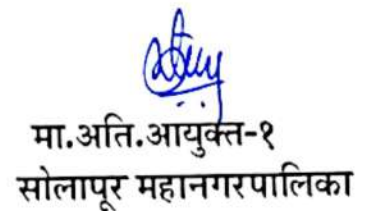 मा.अति.आयुक्त-१
सोलापूर महानगरपालिका